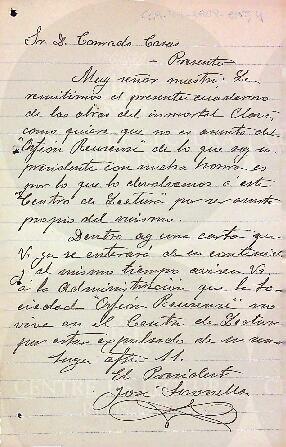 Sr. D. Conrado Casas
Presente
Muy señor nuestro: Le
remitimos el presente cuaderno
de las obras del inmortal Clavé,
como quiera que no es asunto del
"Orfeón Reusense" de lo que soy
presidente con mucha honra es
por lo que lo devolvemos a este
Centro de Lectura por ser asunto
propio del mismo.
Dentro ay una carta que
V. ya se enterara de su contenido
y al mismo tiempo avisen Vs.
a la Administracion que la So-
ciedad "Orfeón Reusense" no
vive en el Centro de Lectura
por estar expulsado de su seno
Suyo afto. S.S.
El President
José
CENTRE